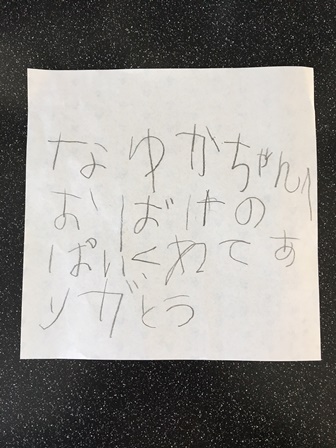 なゆかちゃんへ
おばけの
ぱいくれてあ
りがとう